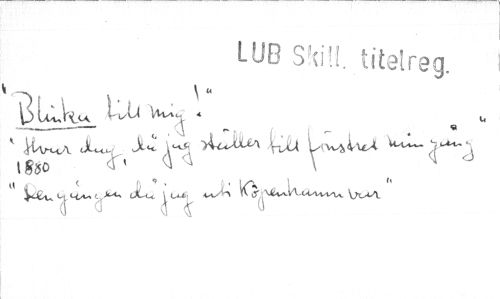 LUB Skill. titelreg.
"Blinka till mig!"
"Hvar dag, då jag ställer till fönstret min gång"
1880
"Den gången då jag uti Köpenhamn var"